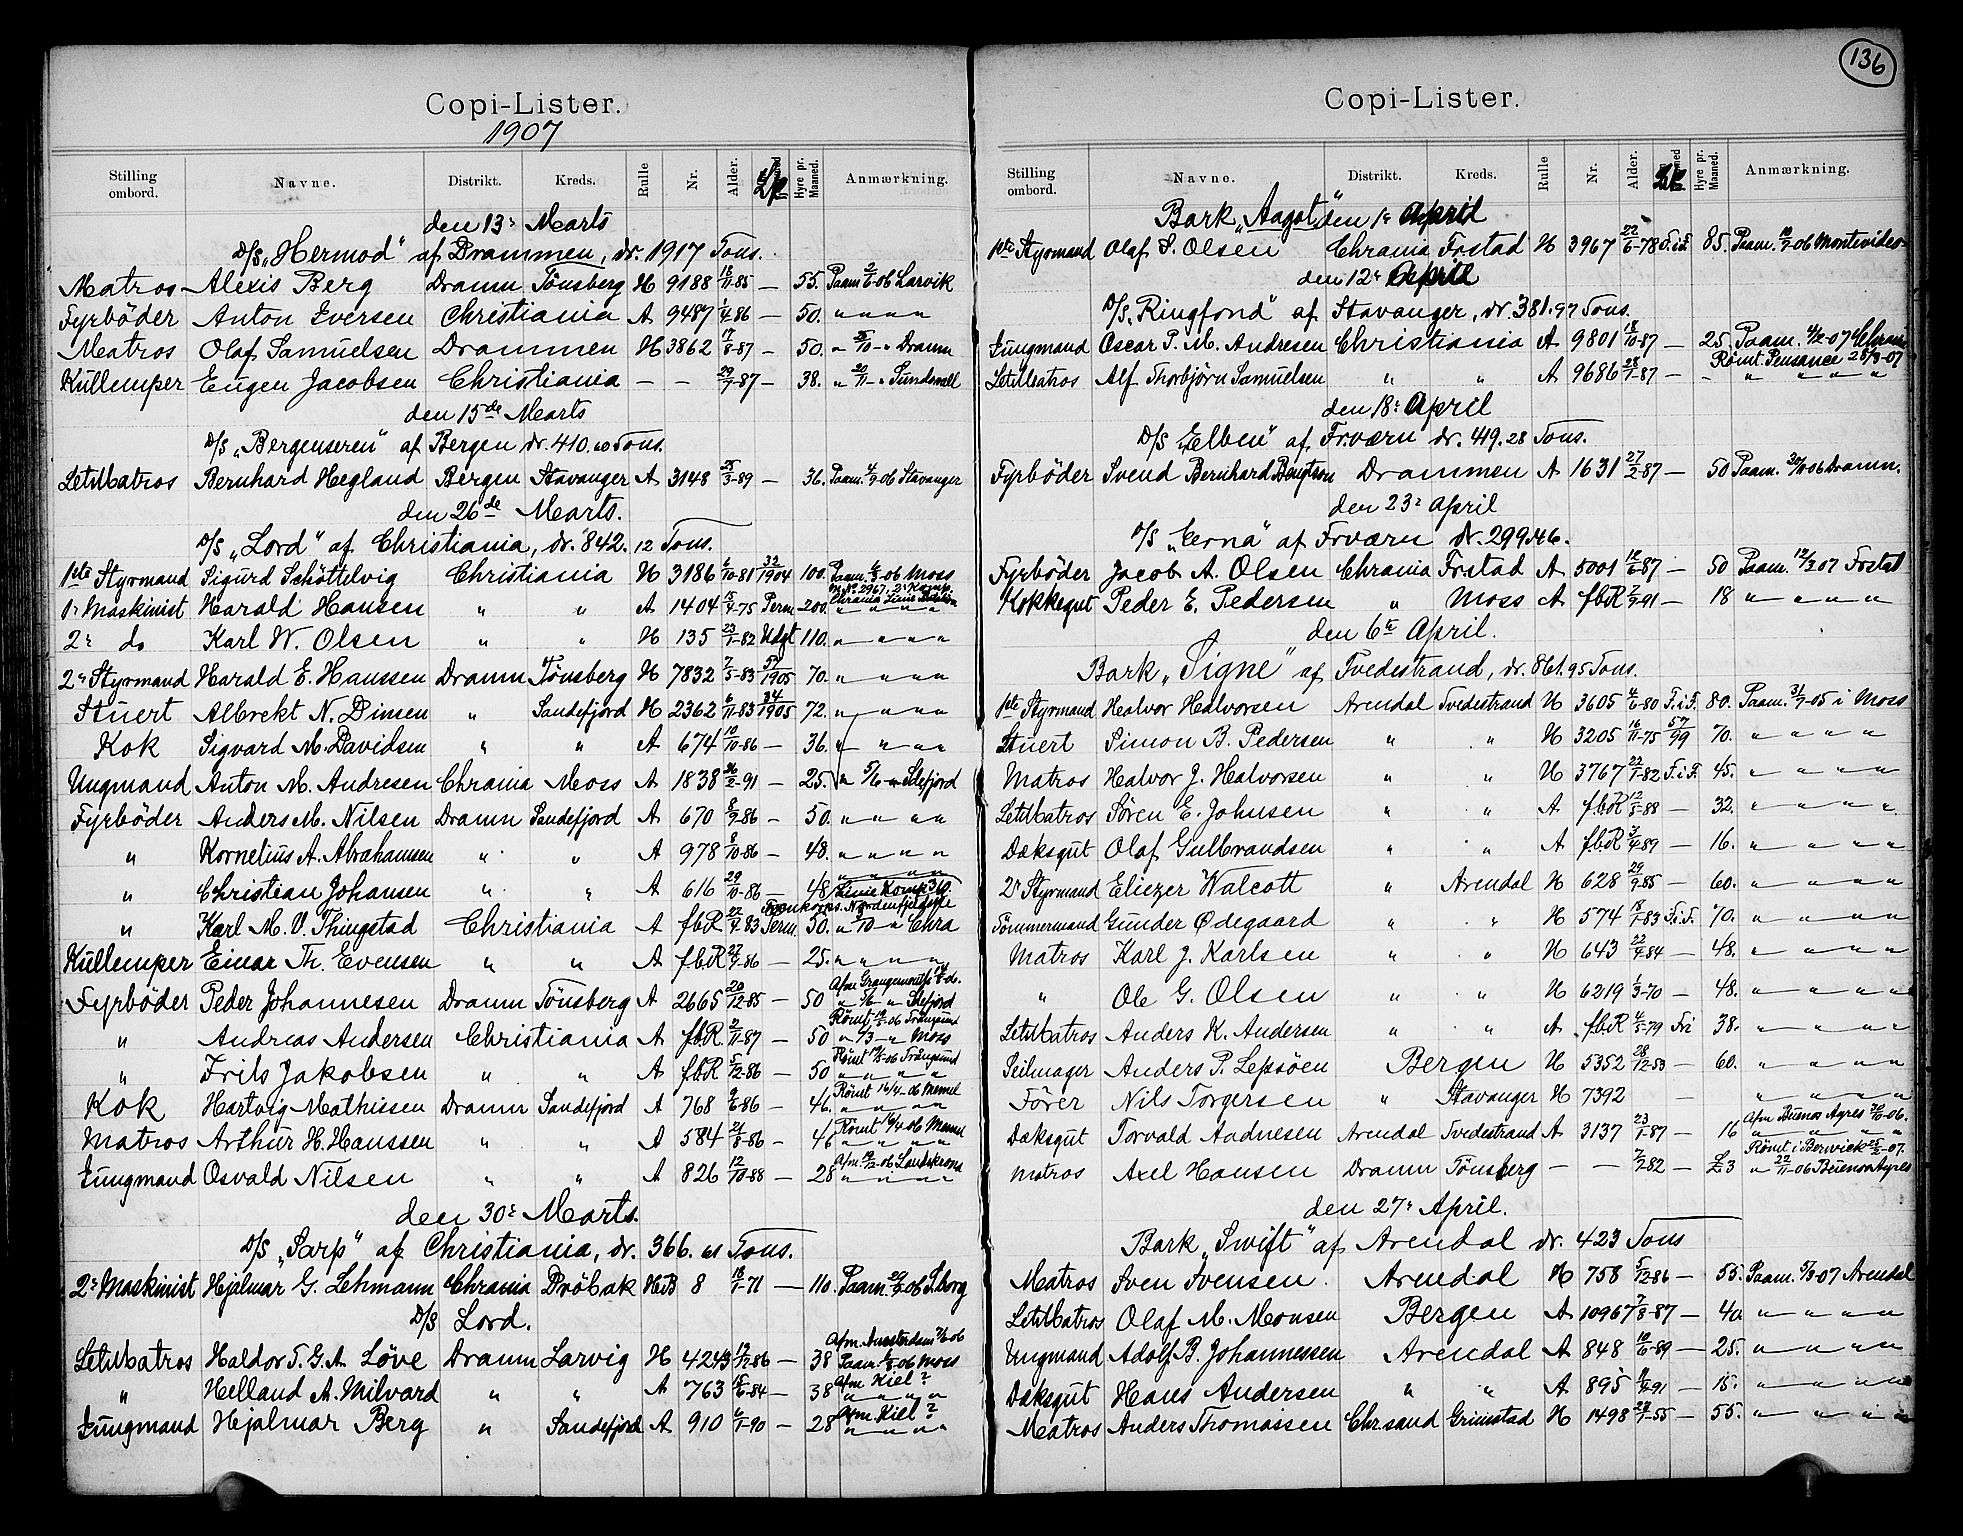 Copi-Lister.
1907
Stilling ombord. Navne. Distrikt. Kreds. Rulle Nr. Alder. Hyre pr. Maaned. Anmærkning.
den 13de Marts
D/S „Hermod" af Drammen, dr. 1917 Tons.
Matros Alexis Berg Dramn Tönsberg H 9188 18/11-85 — 55. Paam. 2/1-06 Larvik
Fyrböder Anton Iversen Christiania A 9487 1/4-86 — 50. " " " "
Matros Olaf Samuelsen Drammen H 3862 17/8-87 — 50. " /10 - " Dramn
Kullemper Eugen Jacobsen Christiania — — 29/7-87 — 38. " 20/11 - " Sundsvall
den 15de Marts
D/S „Bergenseren" af Bergen dr. 410.60 Tons.
LetMatros Bernhard Hegland Bergen Stavanger A 3148 25/3-89 — 36. Paam. 4/9-06 Stavanger
den 26de Marts.
D/S „Lord" af Christiania, dr. 842.12 Tons.
1ste Styrmand Sigurd Schöttelvig Christiania H 3186 6/10-81 32/1904 100. Paam. 6/3-06 Moss
1' Maskinist Harald Hansen " " A 1404 15/4-75 Perm 200. " " " "
2' do Karl W. Olsen " " H 135 23/1-82 Udgt 110. " " " "
2' Styrmand Harald E. Hanssen Dramn Tönsberg H 7832 7/5-83 54/1905 70. " " " "
Stuert Albrekt N. Dimen " Sandefjord H 2362 6/11-83 34/1905 72. " " " "
Kok Sigvard M. Davidsen " " A 674 10/10-86 — 36. " " " "
Ungmand Anton M. Andresen Chrania Moss A 1838 26/2-91 — 25. " 5/6 - " Slefjord
Fyrböder Anders M. Nilsen Dramn Sandefjord A 670 8/9-86 — 50. " " " "
" Kornelius A. Abrahamsen " " A 978 8/10-86 — 48. " " " "
" Christian Johansen " " A 616 29/10-86 — 48 " " " "
Linie Komp 360.
Trænkorps. Nordenfjeldske
" Karl M. V. Thingstad Christiania A fbR 22/4-83 Perm. 50. " 3/10 - " Chra
Kullemper Einar Th. Evensen " " A fbR 27/9-86 — 25. " " " "
Afm Grangemouth
Fyrböder Peder Johannesen Dramn Tönsberg A 2665 20/12-85 — 50 " 1/6 - " Slefjord
Römt 19/5-06 Frångsund
" Andreas Andersen Christiania A fbR. 2/11-87 — 50 " /3 - " Moss
Römt 19/5-06 Trångsund
" Frits Jakobsen " " A fbR 5/12-86 — 50 " " " "
Römt 16/4-06 Memel
Kok Hartvig Mathissen Dramn Sandefjord A 768 9/6-86 — 46. " " " "
Römt 16/4-06 Memel
Matros Arthur H. Hanssen " " A 584 21/8-86 — 46 " " " "
Afm. 19/12-06 Landskrona
Jungmand Osvald Nilsen " " A 826 12/10-88 — 28 " " " "
den 30te Marts.
D/S „Sarp" af Christiania, dr. 366.61 Tons.
2' Maskinist Hjalmar G. Lehmann Chrania Dröbak HvB 8 18/1-71 — 110. Paam. 20/ -06 S.borg
D/S Lord.
Afm. Amsterdam -06
LetMatros Haldor T. G. A. Löve Dramn Larvig H 4243 17/12-86 — 38 Paam. 6/3-06 Moss
Afm Kiel ?
" Helland A. Milvard " " A 763 15/6-84 — 38 " " " "
Afm. Kiel ?
Jungmand Hjalmar Berg " Sandefjord A 910 6/1-90 — 28 " " " "
136
Copi-Lister.
Stilling ombord. Navne. Distrikt. Kreds. Rulle Nr. Alder. Hyre pr. Maaned. Anmærkning.
Bark „Aagot" den 1' April
1ste Styrmand Olaf S. Olsen Chrania Frstad H 3967 22/6-78 F.i.F. 85. Paam. 10/9-06 Montevideo
den 12' April
D/S „Ringfond" af Stavanger, dr. 381.97 Tons.
Jungmand Oscar P. M. Andresen Christiania A 9801 18/10-87 — 25. Paam. 4/2-07 Chrania
Römt Pensance 25/3-07
LetMatros Alf Thorbjörn Samuelsen " " A 9686 28/1-87 — - " " " "
den 18' April
D/S „Elben" af Frværn dr. 419.28 Tons.
Fyrböder Svend Bernhard Bengtson Drammen A 1631 27/2-87 — 50 Paam. 30/ -06 Dramn.
den 23' April
D/S „Erna" af Frværn dr. 299.46.
Fyrböder Jacob A. Olsen Chrania Frstad A 5001 12/6-87 — 50 Paam. 12/3-07 Frstad
Kokkegut Peder E. Pedersen " Moss A fbR 2/9-91 — 18 " " " "
den 6te April.
Bark „Signe" af Tvedestrand, dr. 861.95 Tons.
1ste Styrmand Halvor Halvorsen Arendal Tvedestrand H 3605 4/6-80 F.i.F. 80. Paam. 31/7-05 i Moss
Stuert Simon B. Pedersen " " H 3205 16/11-75 57/99 70. " " " "
Matros Halvor J. Halvorsen " " H 3767 22/1-82 F.i.F. 45. " " " "
LetMatros Sören E. Johnsen " " A fbR 12/5-88 — 32. " " " "
Dæksgut Olaf Gulbrandsen " " A fbR 3/4-89 — 16. " " " "
2' Styrmand Eliezer Walcott " Arendal H 628 29/9-85 — 60. " " " "
Tömmermand Gunder Ødegaard " " H 574 18/1-83 F.i.F. 70. " " " "
Matros Karl J. Karlsen " " H 643 22/9-84 — 48. " " " "
" Ole G. Olsen " " H 6219 1/3-70 — 48. " " " "
LetMatros Anders K. Andersen " " A fbR 4/5-79 Fri 38. " " " "
Seilmager Anders P. Lepsöen Bergen H 5352 28/12-53 — 60. " " " "
Förer Nils Torgersen " Stavanger H 7392 — " " " "
Afm Buenos Ayres 30/10-06.
Dæksgut Torvald Aadnesen Arendal Tvedestrand A 3137 23/1-87 — 16 " " " "
Römt i Berwick 25/2-07.
Matros Axel Hansen Dramn Tönsberg — — 7/7-82 — £3 " 22/11-06 Buenos Ayres
den 27' April.
Bark „Swift" af Arendal dr. 423 Tons
Matros Sven Svensen. Arendal H 758 5/12-86 — 55. Paam. 9/3-07 Arendal
LetMatros Olaf M. Monsen Bergen A 10967 7/8-87 — 40. " " " "
Ungmand Adolf B. Johannessen Arendal A 848 10/6-89 — 25. " " " "
Dæksgut Hans Andersen " " A 895 9/4-91 — 15. " " " "
Matros Anders Thomassen Chr.sand Grimstad H 1498 29/1-55 — 55. " " " "